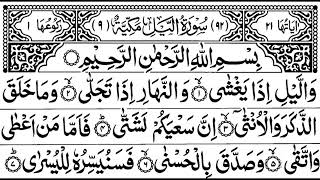 اٰيَاتُهَا ٢١ (٩٢) سُوْرَةُ الَّيْلِ مَكِّيَّةٌ (٩) رُكُوْعُهَا ١
بِسْمِ اللّٰهِ الرَّحْمٰنِ الرَّحِيْمِ
وَالَّيْلِ اِذَا يَغْشٰى ١ وَالنَّهَارِ اِذَا تَجَلّٰى ٢ وَمَا خَلَقَ
الذَّكَرَ وَالْاُنْثٰى ٣ اِنَّ سَعْيَكُمْ لَشَتّٰى ٤ فَاَمَّا مَنْ اَعْطٰى
وَاتَّقٰى ٥ وَصَدَّقَ بِالْحُسْنٰى ٦ فَسَنُيَسِّرُهٗ لِلْيُسْرٰى ٧